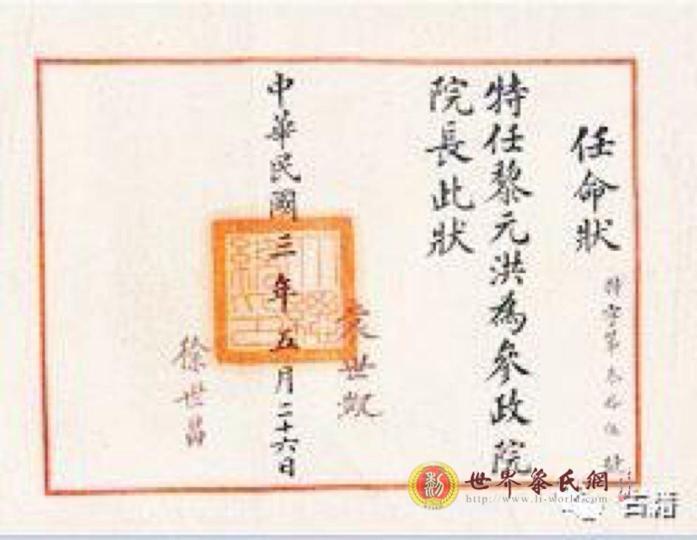 任命狀
特字第叁拾伍號
特任黎元洪為參政院
院長此狀
袁世凱
中華民國三年五月二十六日
徐世昌
世界黎氏網
http://www.li-world.com